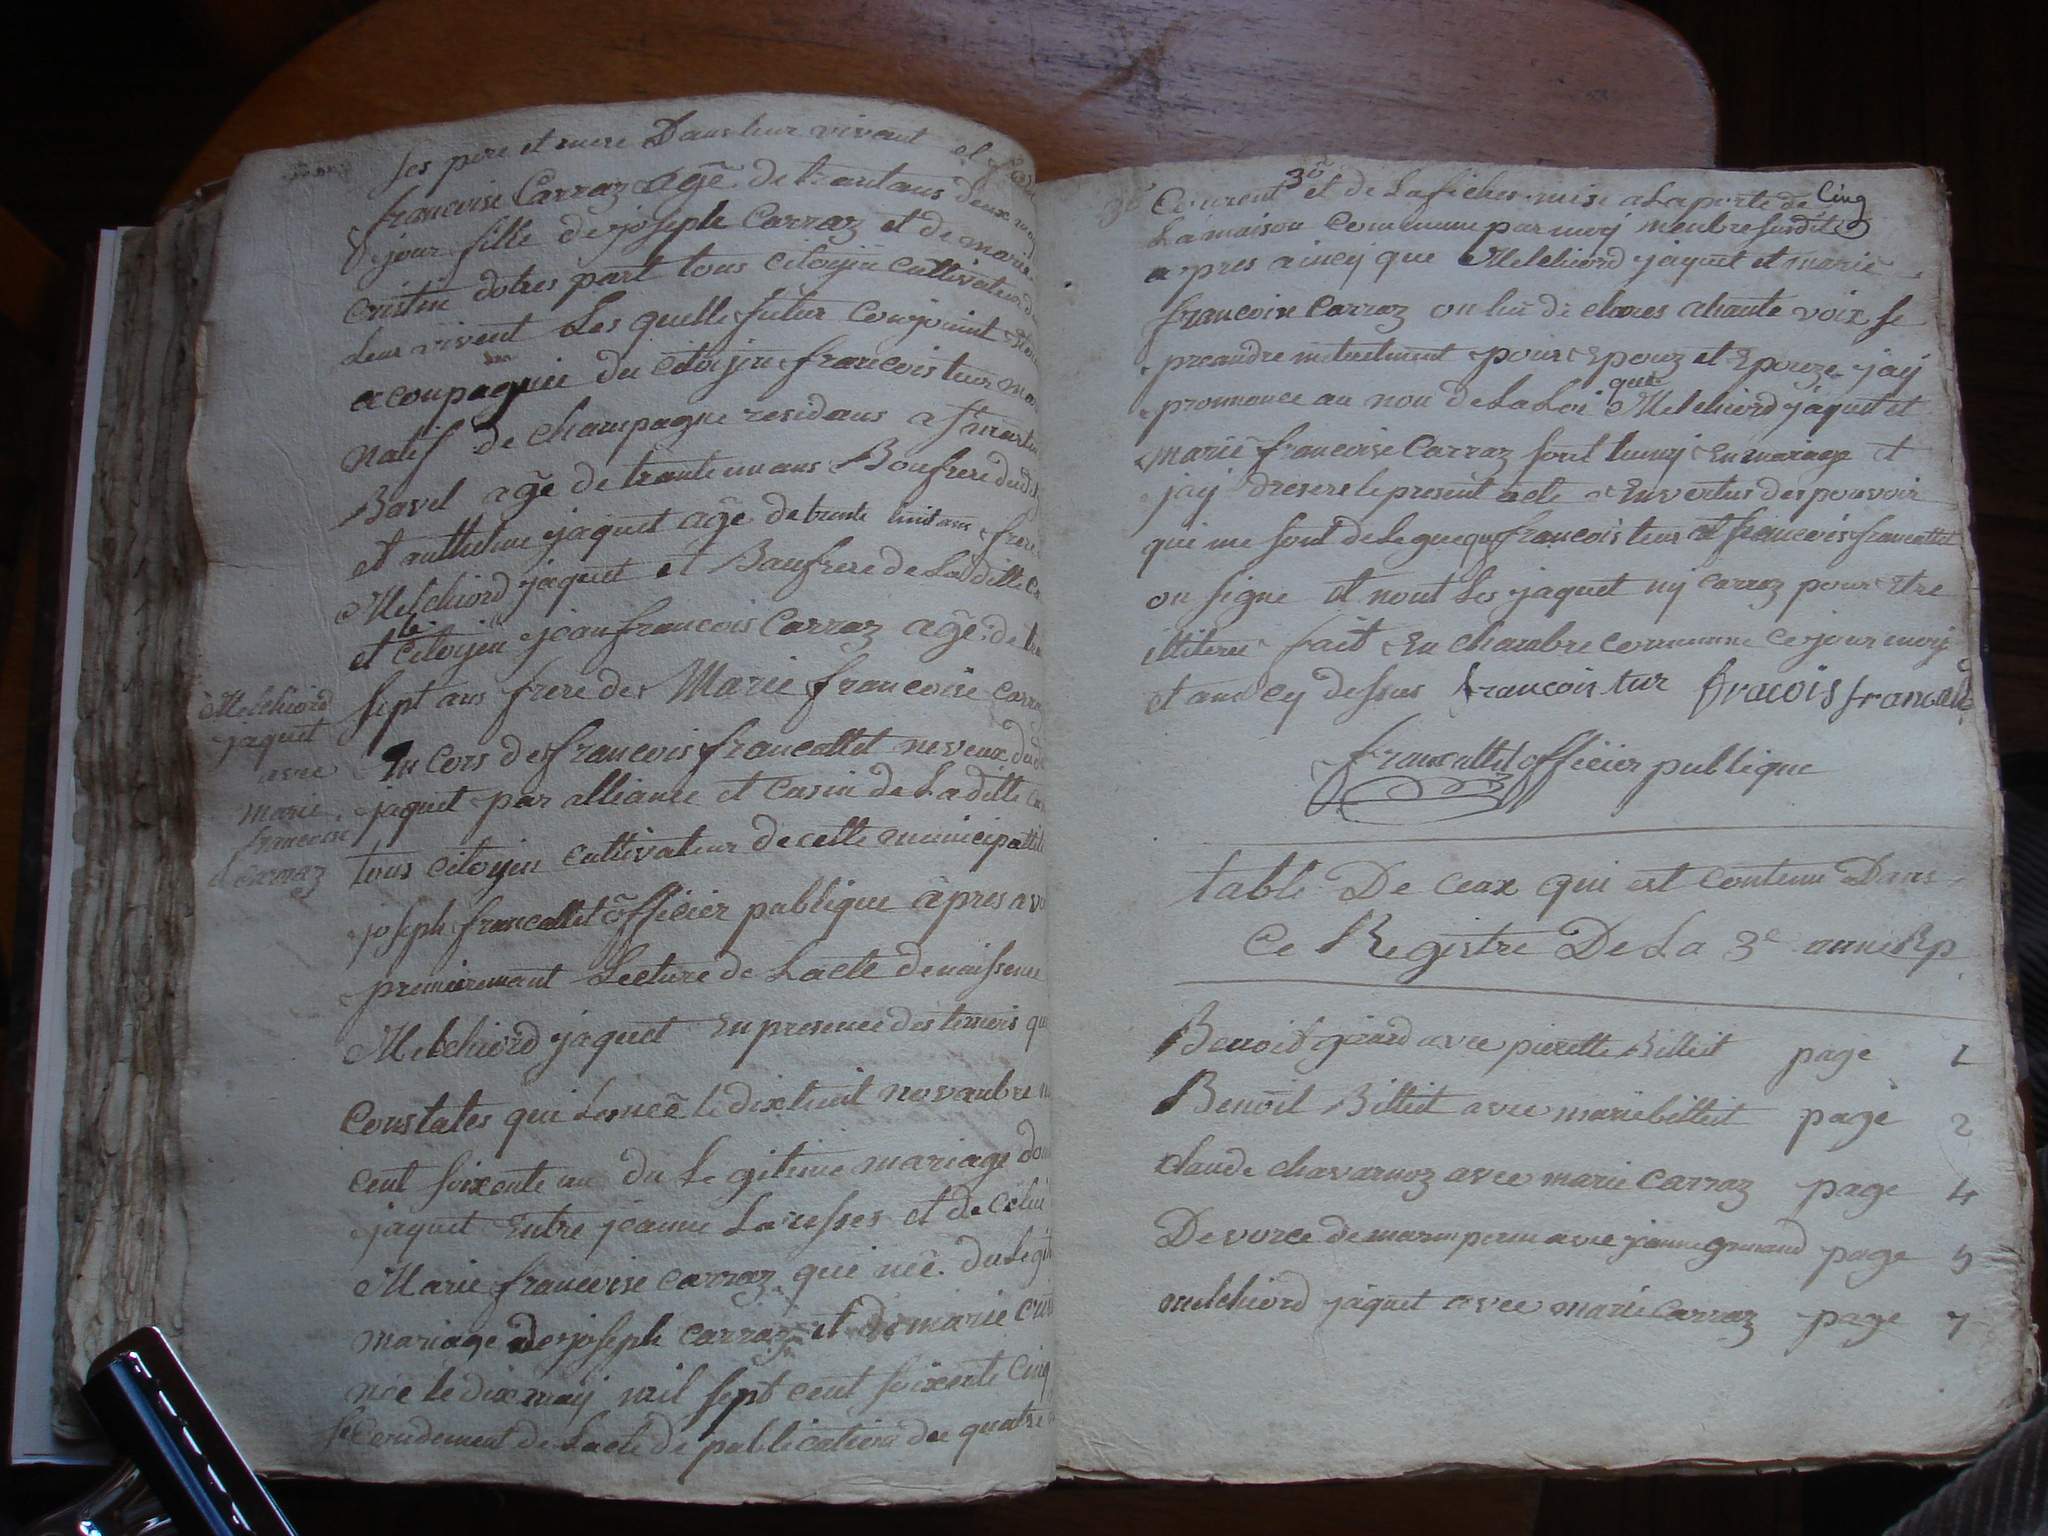 ses pere et mere Dans leur vivent et
francoise Carraz agé de trant ans deux
jour fille de joseph Carraz et de marie
cristin dotres part tous citoijen cultivateur
leur vivent Les quelle futur conjoint
acoupagnée du citoijen francois tur
natif de Champagne residans a st martin
Bavel agé de trante un ans Boufrere dudit
et anthelme jaquet agé de trente huit ans frere
Melchiord jaquet et Baufrere de La ditte
et le Citoijen jean francois Carraz agé de
sept ans frere de Marie francoise carraz
Melchiord
jaquet
avec
marie
francoise
carraz
En cors de francois francallet neveux du
jaquet par alliance et casin de La ditte
tous citoijen cultivateur de cette municipallite
joseph francallet officier publique apres
premierement Lecture de Lacte de naissence
Melchiord jaquet En presence des temoins
Constates qui les neé le dixhuit novanbre
cent soixente un du Legitime mariage
jaquet Entre jeanne et de celui
Marie francoise carraz que neé du
mariage de joseph carraz et de marie
neé le dix maij mil sept cent soixente cinq
de Lacte de publication du quatre
Courent 3° et de Lafiches mise a La porte de Cinq
La maison commune par moij menbre susdit
apres aincij que Melchiord jaquet et marie
francoise Carraz on lui de clares ahaute voix se
preandre mutuelment pour Epouz et Epouze jaij
pronnonce au non de La Loi que Melchiord jaquet et
marie francoise Carraz sont En mariage et
jaij dresere le present acte En vertus des pouvoir
qui me sont delegue que francois teur et francois francallet
on signe et nont Les jaquet nij carraz pour Etre
illiteree fait En chambre commune ce jour moij
et an cy dessus francois tur fracois francalet
francallet officier publique
table De ceax qui est contenu Dans
Ce Registre De La 3e anné Rp
Benoit girard avec pierette Billiet page 1
Benoit Billiet avec marie billiet page 2
claude chavarnoz avec marie carraz page 4
Devorce de avec page 5
melchiord jaquet avec marie carraz page 7